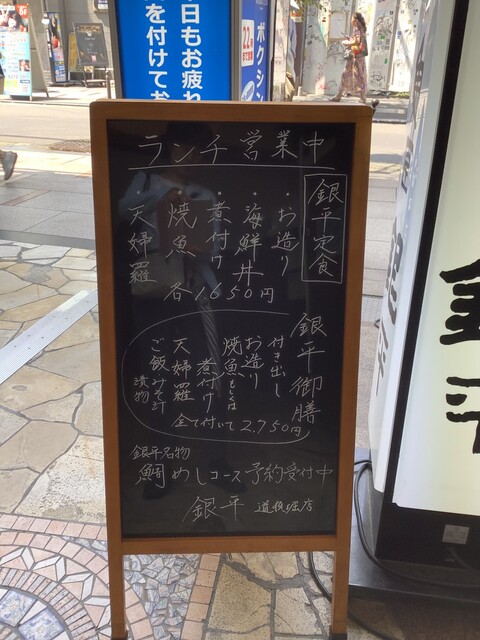 ランチ営業中
銀平定食
・お造り
・海鮮丼
・煮付け
・焼魚
・天婦羅
各1650円
銀平御膳
付き出し
お造り
焼魚もしくは
煮付け
天婦羅
ご飯みそ汁
漬物
全て付いて2,750円
銀平名物
鯛めしコース予約受付中
銀平 道頓堀店
日もお疲れ
を付けてお
ボクシン
22
銀平